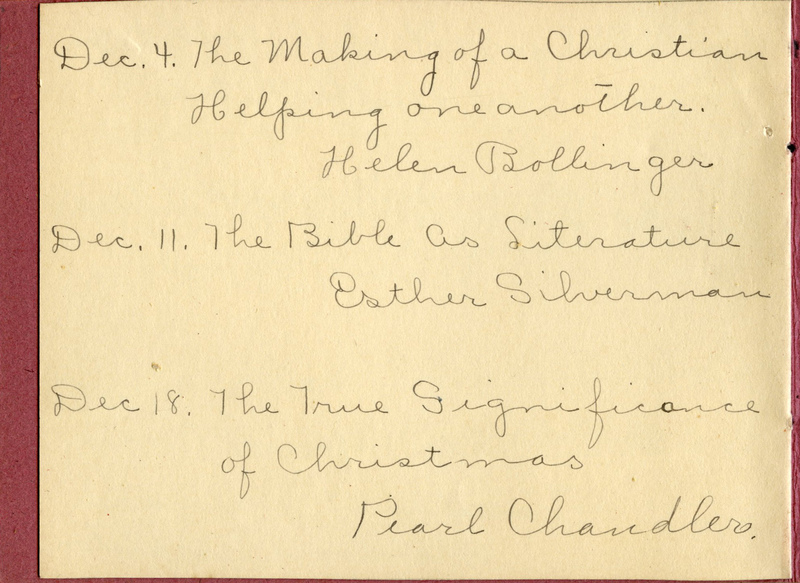 Dec. 4. The Making of a Christian
Helping one another.
Helen Bollinger
Dec. 11. The Bible as Literature
Esther Silverman
Dec 18. The True Significance
of Christmas
Pearl Chandler.